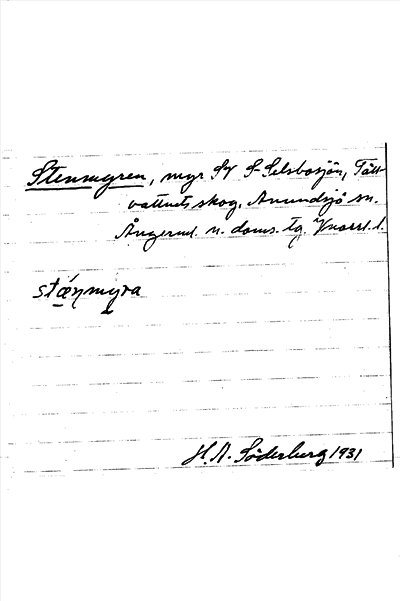 Stenmyren, myr SV S-Selsbosjön, Tätt-
vattnets skog, Anundsjö sn.
Ångerml. n. doms. tg. Vnorrl. l.
stǽnmyra
H. A. Söderberg 1931